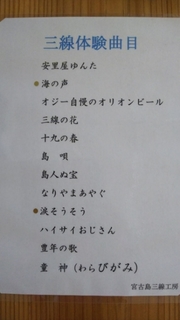 三線体験曲目
安里屋ゆんた
海の声
オジー自慢のオリオンビール
三線の花
十九の春
島 唄
島人ぬ宝
なりやまあやぐ
涙そうそう
ハイサイおじさん
豊年の歌
童 神(わらびがみ)
宮古島三線工房